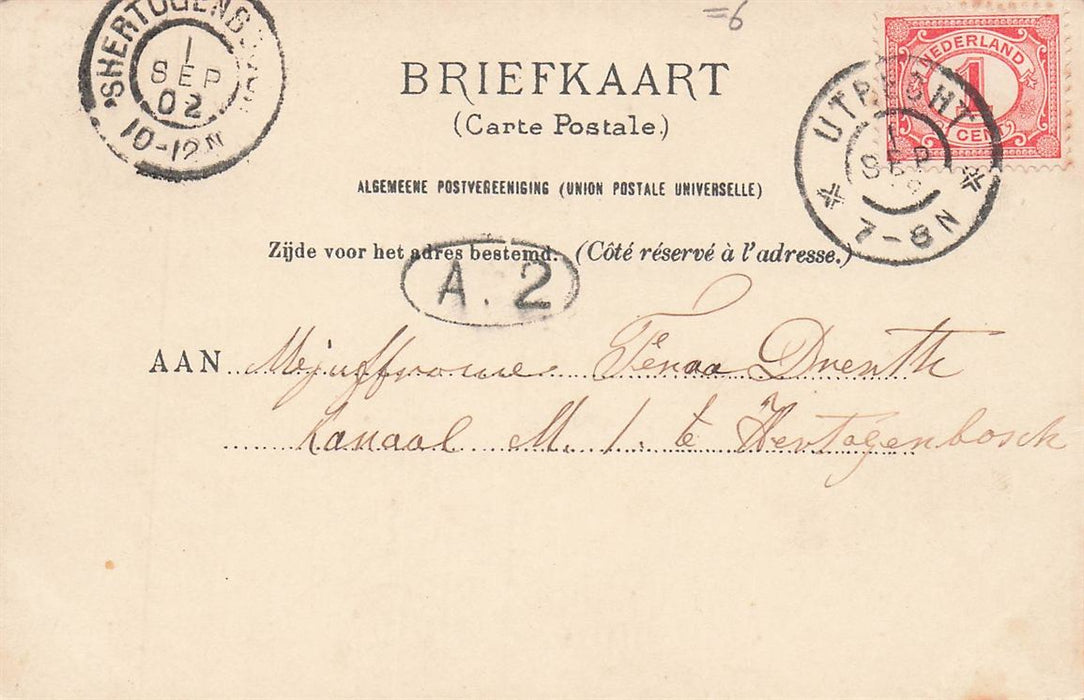 =6
'SHERTOGENBOSCH
1
SEP
02
10-12N
BRIEFKAART
(Carte Postale.)
NEDERLAND
1
CENT
UTRECHT
1
SEP
7-8N
ALGEMEENE POSTVEREENIGING (UNION POSTALE UNIVERSELLE)
Zijde voor het adres bestemd. (Côté réservé à l'adresse.)
A. 2
AAN Mejuffrouw Drenth
Kanaal M. 1. te Hertogenbosch